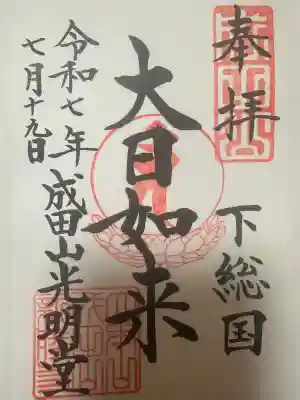 奉拝
下総国
大日如来
令和七年
七月十九日
成田山光明堂